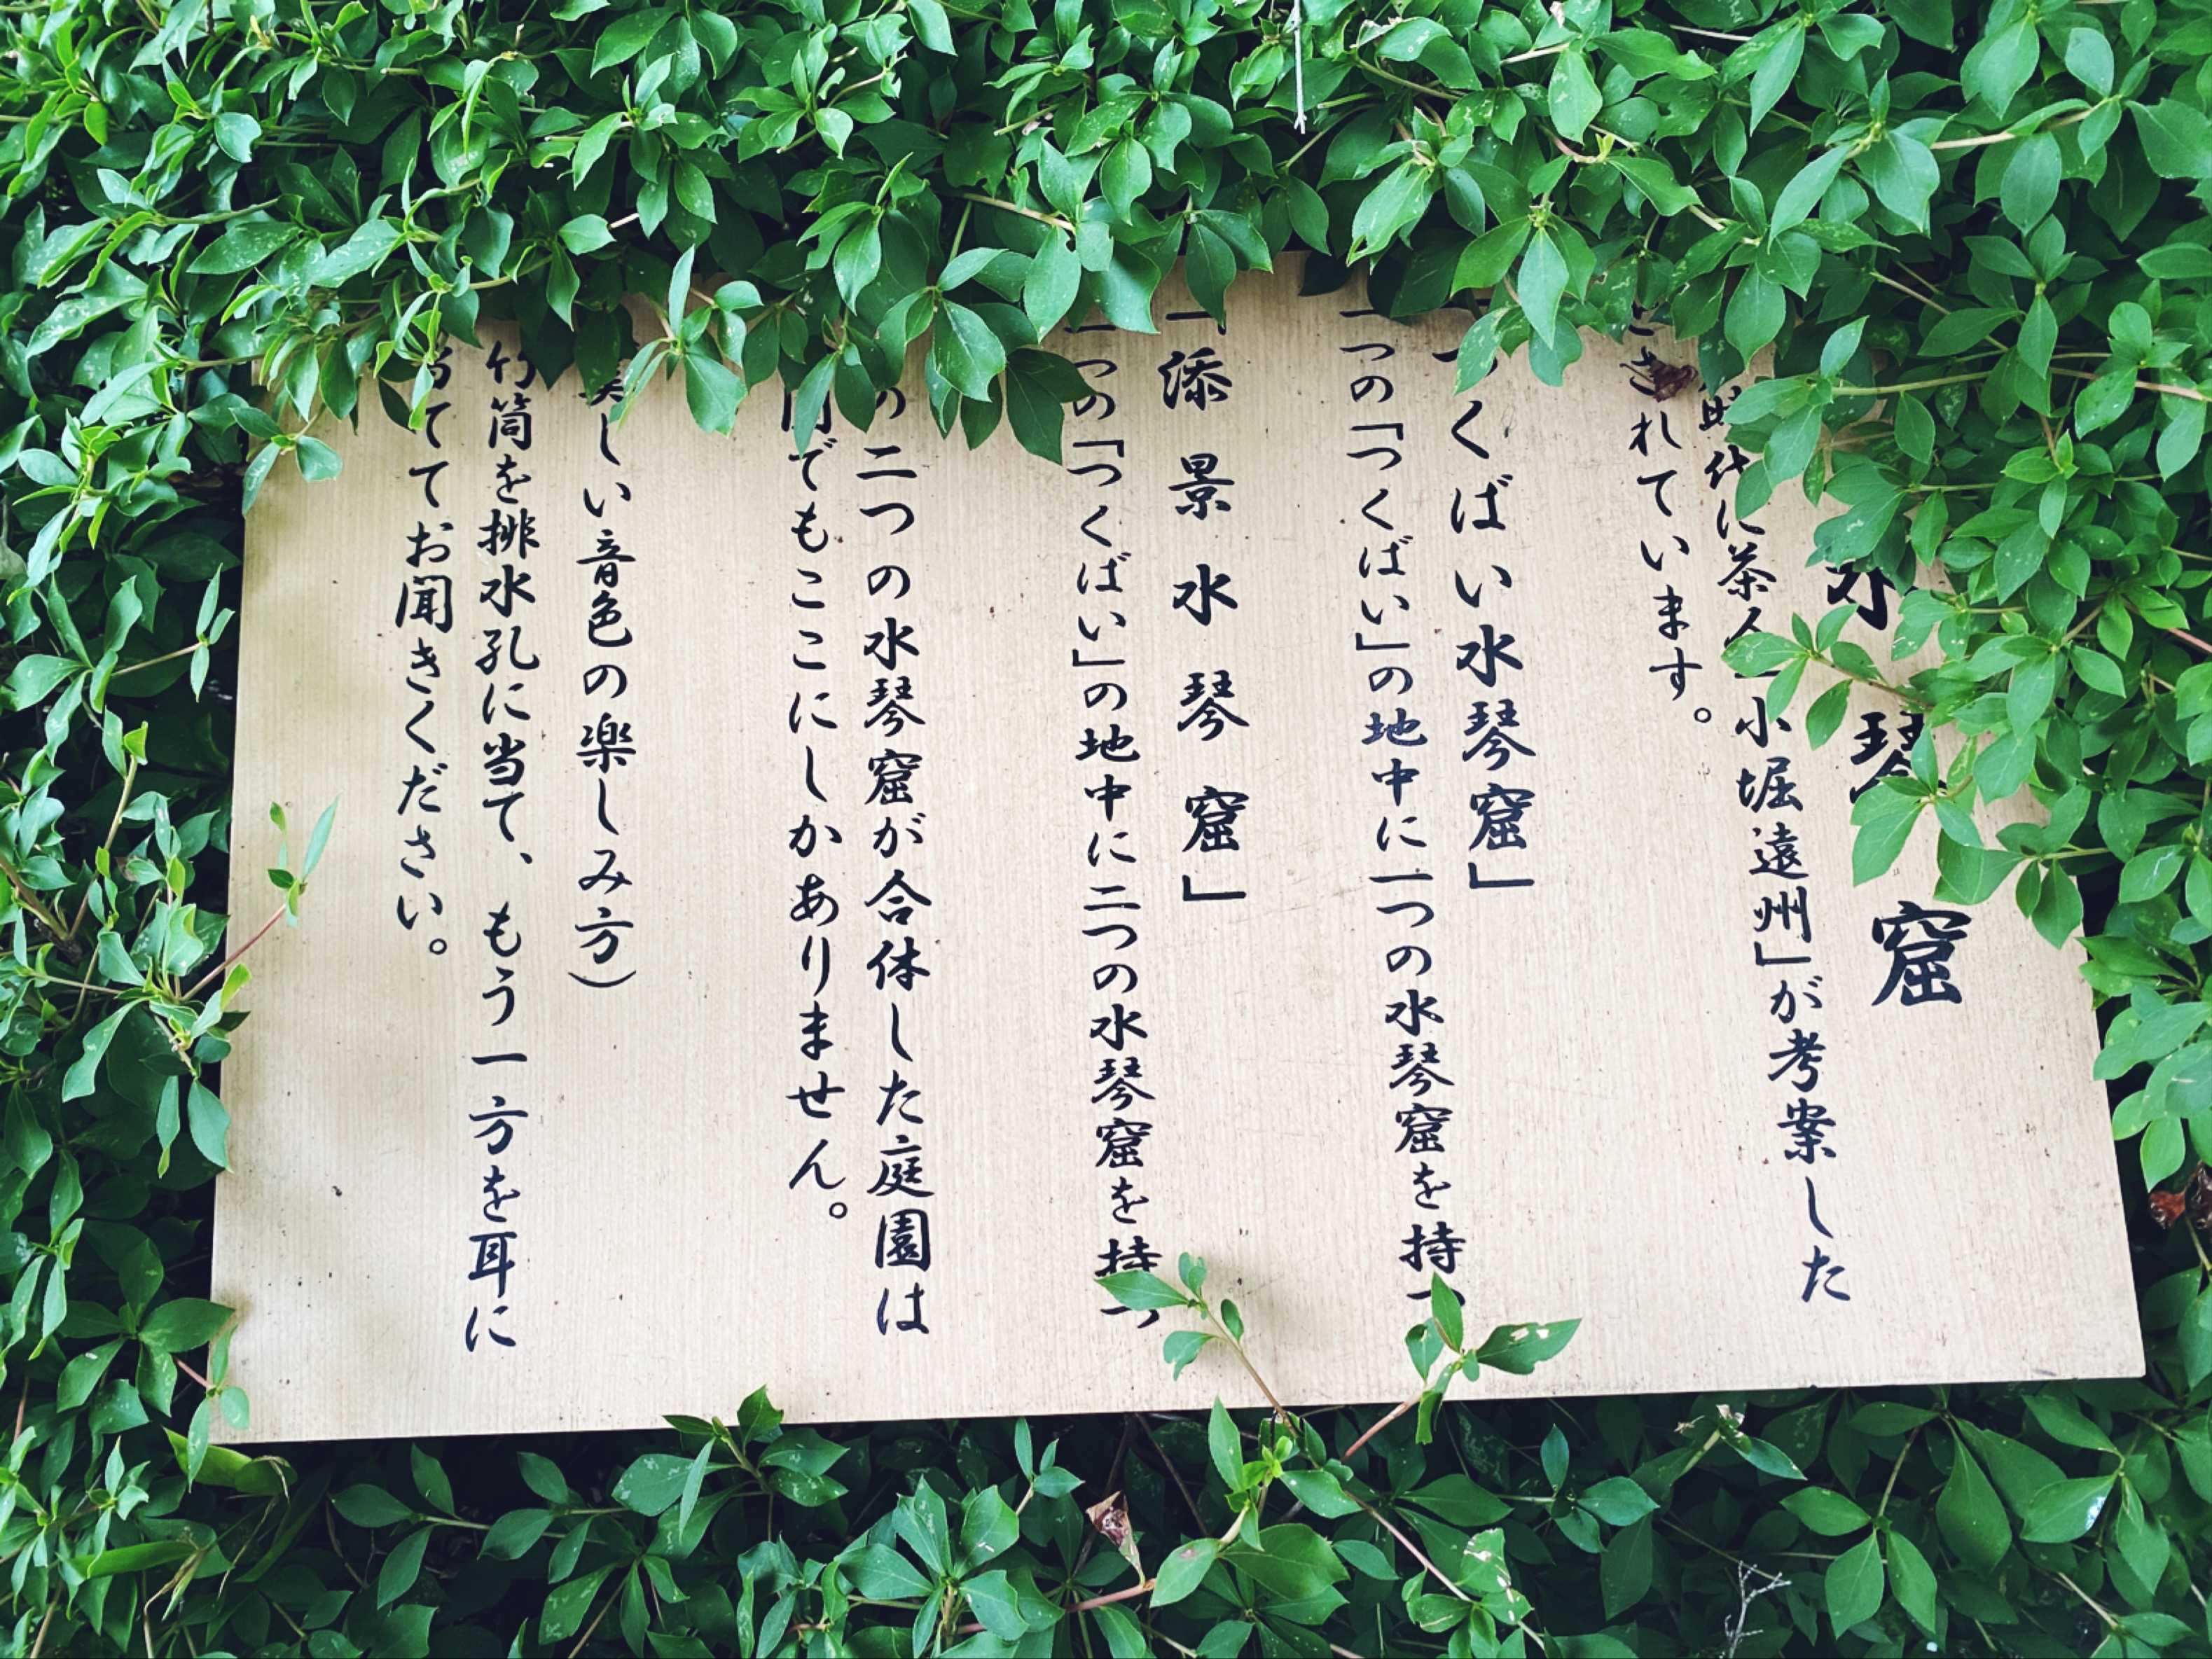 水琴窟
時代に茶人「小堀遠州」が考案した
とされています。
つくばい水琴窟」
一つの「つくばい」の地中に一つの水琴窟を持つ
「添景水琴窟」
一つの「つくばい」の地中に二つの水琴窟を持つ
の二つの水琴窟が合体した庭園は
でもここにしかありません。
美しい音色の楽しみ方)
竹筒を排水孔に当て、もう一方を耳に
当ててお聞きください。